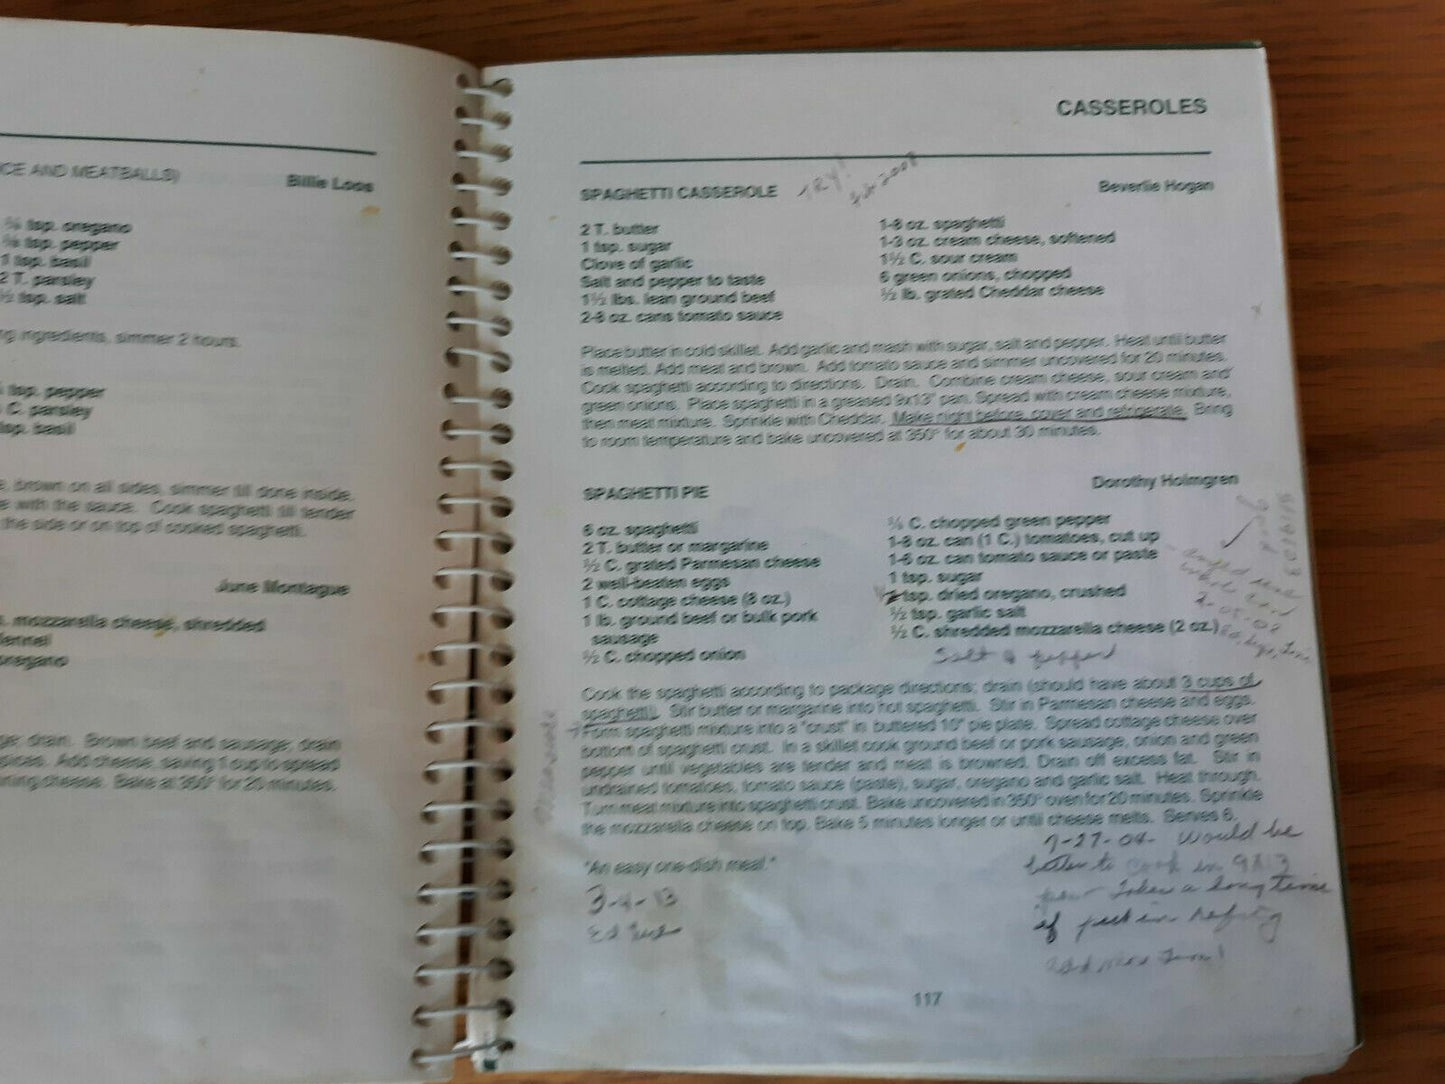 ICE AND MEATBALLS) Billie Loos
tsp. oregano
tsp. pepper
1 tsp. basil
2 T. parsley
½ tsp. salt
ingredients, simmer 2 hours.
tsp. pepper
C. parsley
tsp. basil
brown on all sides, simmer till done inside.
with the sauce. Cook spaghetti till tender
the side or on top of cooked spaghetti.
June Montague
mozzarella cheese, shredded
fennel
oregano
drain. Brown beef and sausage; drain
Add cheese, saving 1 cup to spread
cheese. Bake at 350° for 20 minutes.
CASSEROLES
SPAGHETTI CASSEROLE TRY! Beverlie Hogan
2008
2 T. butter
1 tsp. sugar
Clove of garlic
Salt and pepper to taste
1½ lbs. lean ground beef
2-8 oz. cans tomato sauce
1-8 oz. spaghetti
1-3 oz. cream cheese, softened
1½ C. sour cream
6 green onions, chopped
½ lb. grated Cheddar cheese
Place butter in cold skillet. Add garlic and mash with sugar, salt and pepper. Heat until butter
is melted. Add meat and brown. Add tomato sauce and simmer uncovered for 20 minutes.
Cook spaghetti according to directions. Drain. Combine cream cheese, sour cream and
green onions. Place spaghetti in a greased 9x13" pan. Spread with cream cheese mixture,
then meat mixture. Sprinkle with Cheddar. Make night before, cover and refrigerate. Bring
to room temperature and bake uncovered at 350° for about 30 minutes.
SPAGHETTI PIE Dorothy Holmgren
6 oz. spaghetti
2 T. butter or margarine
½ C. grated Parmesan cheese
2 well-beaten eggs
1 C. cottage cheese (8 oz.)
1 lb. ground beef or bulk pork
sausage
½ C. chopped onion
C. chopped green pepper
1-8 oz. can (1 C.) tomatoes, cut up
1-6 oz. can tomato sauce or paste
1 tsp. sugar
tsp. dried oregano, crushed
½ tsp. garlic salt
½ C. shredded mozzarella cheese (2 oz.)
Salt & pepper
Cook the spaghetti according to package directions; drain (should have about 3 cups of
spaghetti). Stir butter or margarine into hot spaghetti. Stir in Parmesan cheese and eggs.
Form spaghetti mixture into a "crust" in buttered 10" pie plate. Spread cottage cheese over
bottom of spaghetti crust. In a skillet cook ground beef or pork sausage, onion and green
pepper until vegetables are tender and meat is browned. Drain off excess fat. Stir in
undrained tomatoes, tomato sauce (paste), sugar, oregano and garlic salt. Heat through.
Turn meat mixture into spaghetti crust. Bake uncovered in 350° oven for 20 minutes. Sprinkle
the mozzarella cheese on top. Bake 5 minutes longer or until cheese melts. Serves 6.
"An easy one-dish meal."
3-4-13
Ed
7-27-04- Would be
better to cook in 9x13
pan - Takes a long time
if put in refrig
add more
117